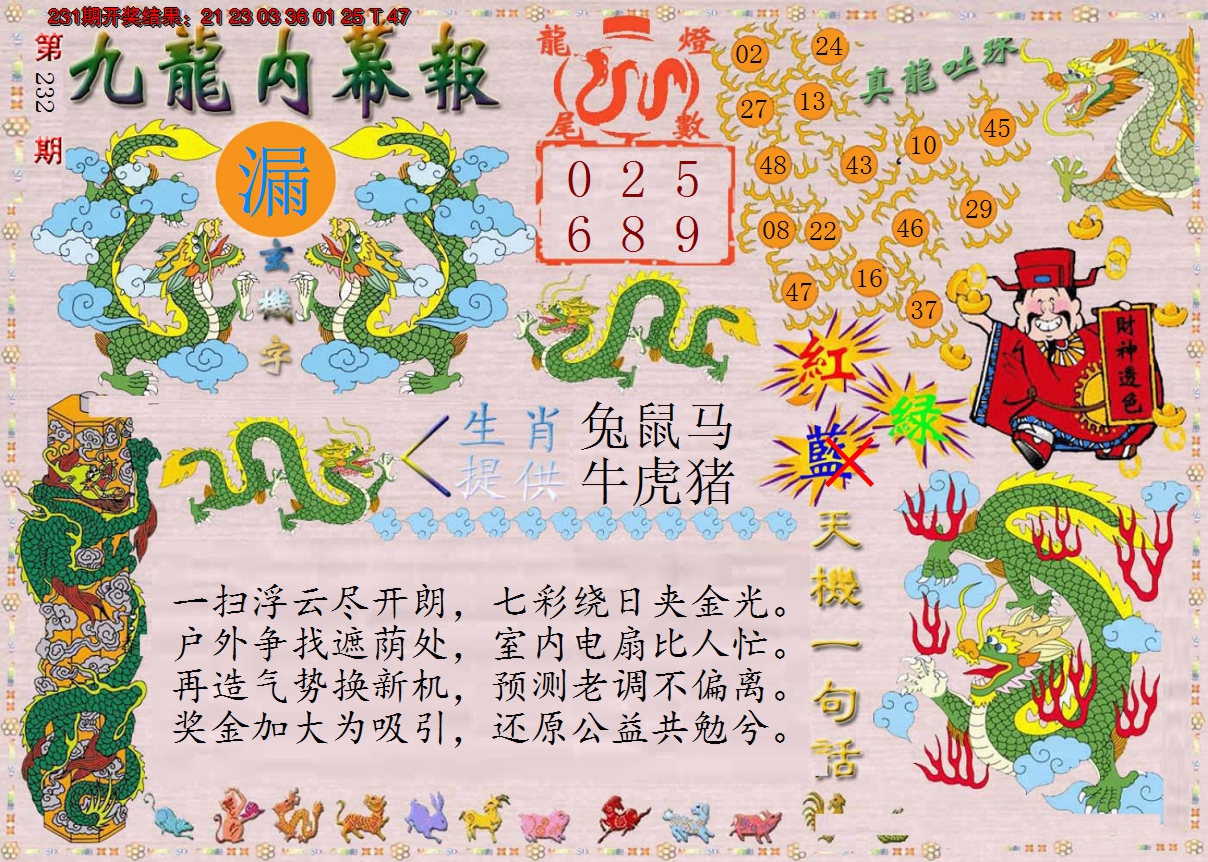 231期开奖结果：21 23 03 36 01 25 T 47
第232期
九龍內幕報
漏
玄機字
龍燈
尾數
0 2 5
6 8 9
真龍吐珠
02 24
27 13
48 43 10 45
08 22 46 29
47 16 37
財神透色
紅
綠
藍
生肖
提供
兔鼠马
牛虎猪
天機一句话
一扫浮云尽开朗，七彩绕日夹金光。
户外争找遮荫处，室内电扇比人忙。
再造气势换新机，预测老调不偏离。
奖金加大为吸引，还原公益共勉兮。